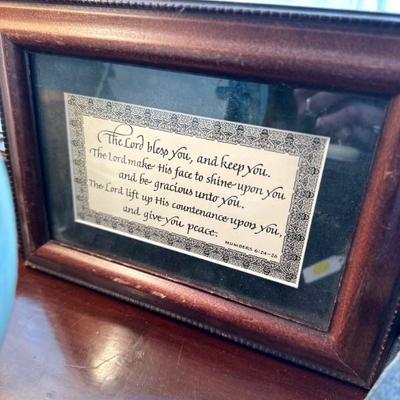 The Lord bless you, and keep you.
The Lord make His face to shine upon you
and be gracious unto you.
The Lord lift up His countenance upon you,
and give you peace.
NUMBERS 6:24-26